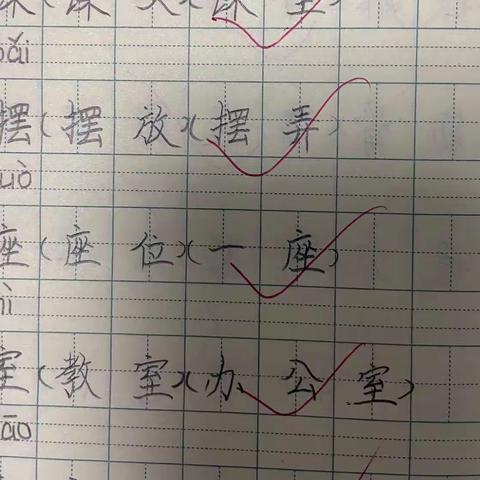 bǎi
摆(摆放)(摆弄)
uò
座(座位)(一座)
ì
室(教室)(办公室)
āo